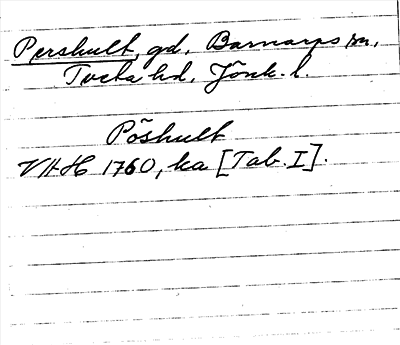 Pershult, gd. Barnarps sn,
Tveta hd. Jönk. l.
Pöshult
VHH 1760, ka [Tab. I].